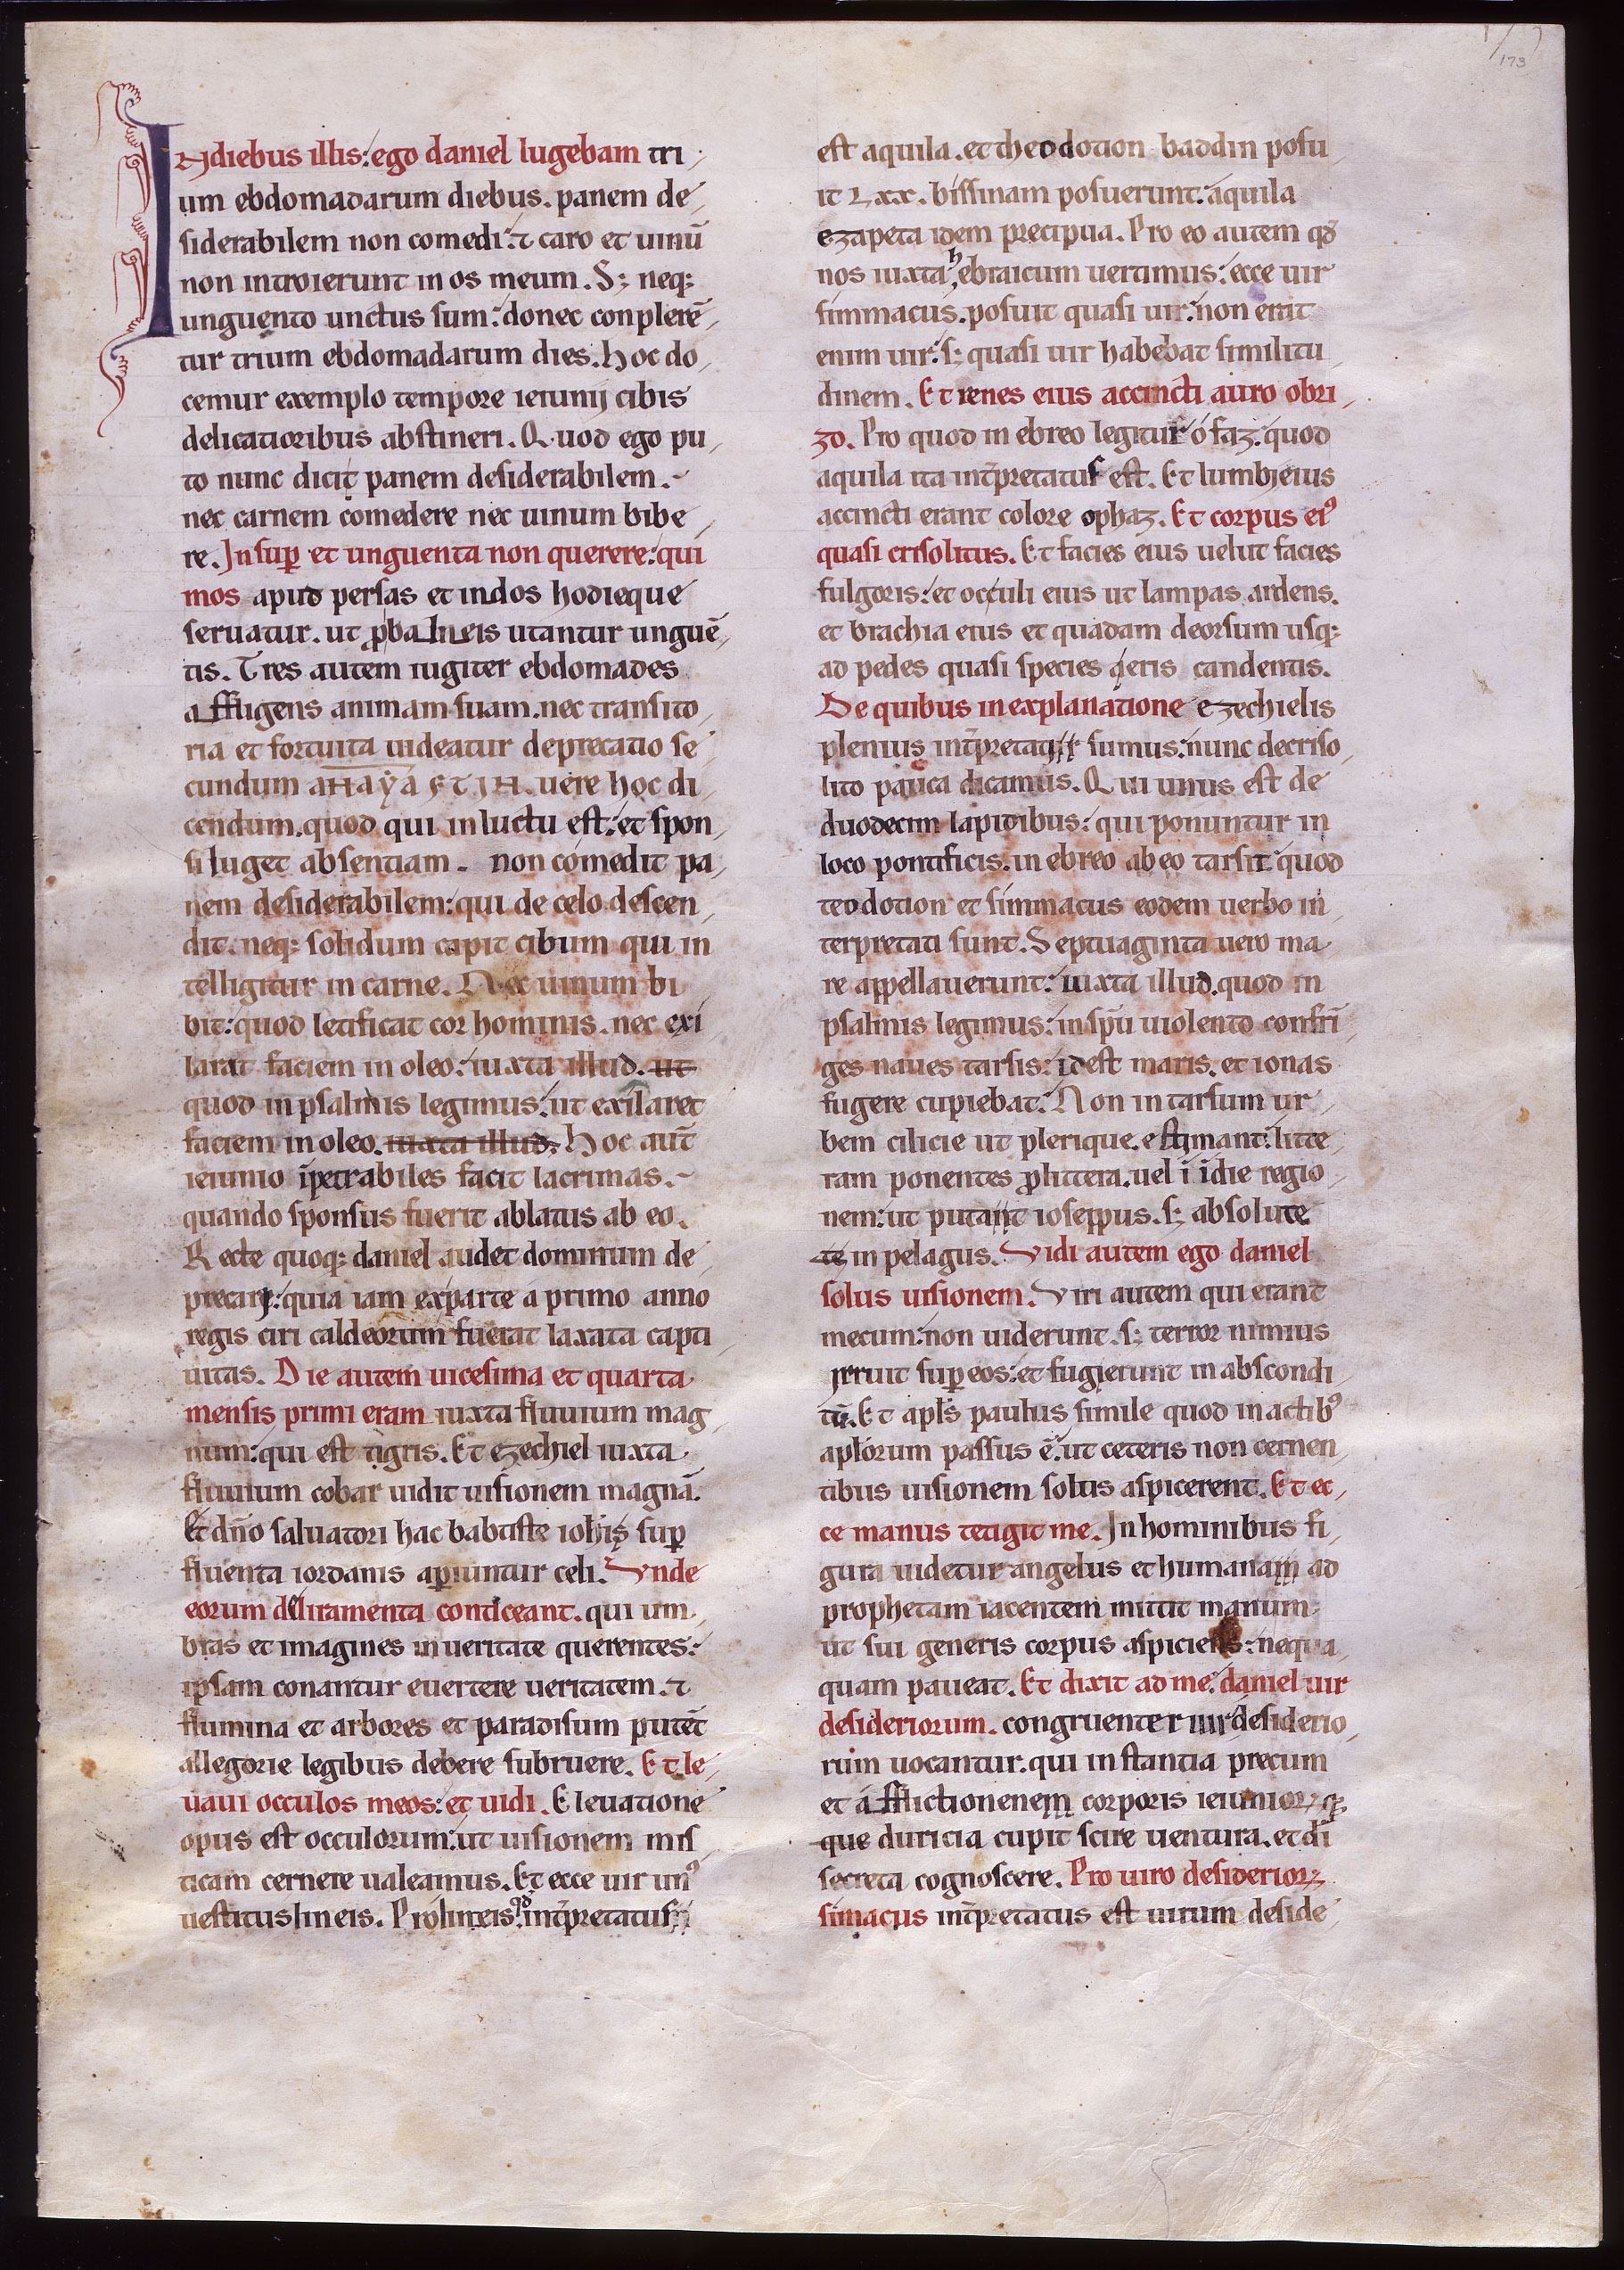 173
In diebus illis: ego daniel lugebam tri
um ebdomadarum diebus. panem de
siderabilem non comedi: ⁊ caro et uinū
non introierunt in os meum. S; neq;
unguento unctus sum: donec conplerē
tur trium ebdomadarum dies. hoc do
cemur exemplo tempore ieiunij cibis
delicatioribus abstineri. Quod ego pu
to nunc dicit panem desiderabilem.
nec carnem comedere nec uinum bibe
re. Insuꝑ et unguenta non querere: qui
mos apud persas et indos hodieque
seruatur. ut ꝓ balneis utantur unguē
tis. Tres autem iugiter ebdomades
affligens animam suam. nec transito
ria et fortuita uideatur deprecatio se
cundum uere hoc di
cendum. quod qui in luctu est: et spon
si luget absentiam. non comedit pa
nem desiderabilem: qui de celo descen
dit. neq; solidum capit cibum qui in
telligitur in carne. Nec uinum bi
bit: quod letificat cor hominis. nec exi
larat faciem in oleo: iuxta illud. ut
quod in psalmis legimus: ut exilaret
faciem in oleo. iuxta illud. Hoc aut̄
ieiunio īpetrabiles facit lacrimas.
quando sponsus fuerit ablatus ab eo.
Recte quoq; daniel audet dominum de
precarj: quia iam ex parte a primo anno
regis ciri caldeorum fuerat laxata capti
uitas. Die autem uicesima et quarta
mensis primi eram iuxta fluuium mag
num: qui est tigris. Et ezechiel iuxta
fluuium cobar uidit uisionem magnā.
Et dn̄o saluatori hac babtiste ioh̄is suꝑ
fluenta iordanis aꝑiuntur celi. Vnde
eorum deliramenta conticeant. qui um
bras et imagines in ueritate querentes:
ipsam conantur euertere ueritatem. ⁊
flumina et arbores et paradisum putēt
allegorie legibus debere subruere. Et le
uaui occulos meos: et uidi. Eleuatione
opus est occulorum: ut uisionem mis
ticam cernere ualeamus. Et ecce uir unꝰ
uestitus lineis. Pro lineis: qd̓ int̄pretatus
est aquila. et theodotion baddin posu
it Lxx. bissinam posuerunt: aquila
ezapeta idem precipua. Pro eo autem qd̓
nos iuxta hebraicum uertimus: ecce uir
simmacus. posuit quasi uir: non erat
enim uir: s; quasi uir habebat similitu
dinem. Et renes eius accincti auro obri
zo. Pro quod in ebreo legitur ofaz: quod
aquila ita int̄pretatus est. Et lumbj eius
accincti erant colore ophaz. Et corpus eiꝰ
quasi crisolitus. Et facies eius uelut facies
fulgoris: et occuli eius ut lampas ardens.
et brachia eius et quadam deorsum usq;
ad pedes quasi species aeris candentis.
De quibus in explanatione ezechielis
plenius sumus: nunc de criso
lito pauca dicamus. Qui unus est de
duodecim lapidibus: qui ponuntur in
loco pontificis: in ebreo ab eo tarsit quod
teodotion et simmacus eodem uerbo in
terpretati sunt. Septuaginta uero ma
re appellauerunt: iuxta illud. quod in
psalmis legimus: in sp̄u uiolento confri
ges naues tarsis: id est maris. et ionas
fugere cupiebat: Non in tarsum ur
bem cilicie ut plerique. estimant: litte
ram ponentes ꝓ littera. uel ī īdie regio
nem: ut putant ioseppus. s; absolute
te in pelagus. Vidi autem ego daniel
solus uisionem. Viri autem qui erant
mecum: non uiderunt. s; terror nimius
irruit suꝑ eos: et fugierunt in abscondi
tū. Et apl̄s paulus simile quod in actibꝰ
apl̄orum passus ē. ut ceteris non cernen
tibus uisionem solus aspicerent. Et ec
ce manus tetigit me. In hominibus fi
gura uidetur angelus et humanam ad
prophetam iacentem mittit manum:
ut sui generis corpus aspiciens: nequa
quam paueat. Et dixit ad me: daniel uir
desideriorum. congruenter uir desiderio
rum uocantur. qui instantia precum
et afflictionenem corporis ieiunioꝝ q;
que duricia cupit scire uentura. et dī
secreta cognoscere. Pro uiro desiderioꝝ
simacus int̄pretatus est uirum deside